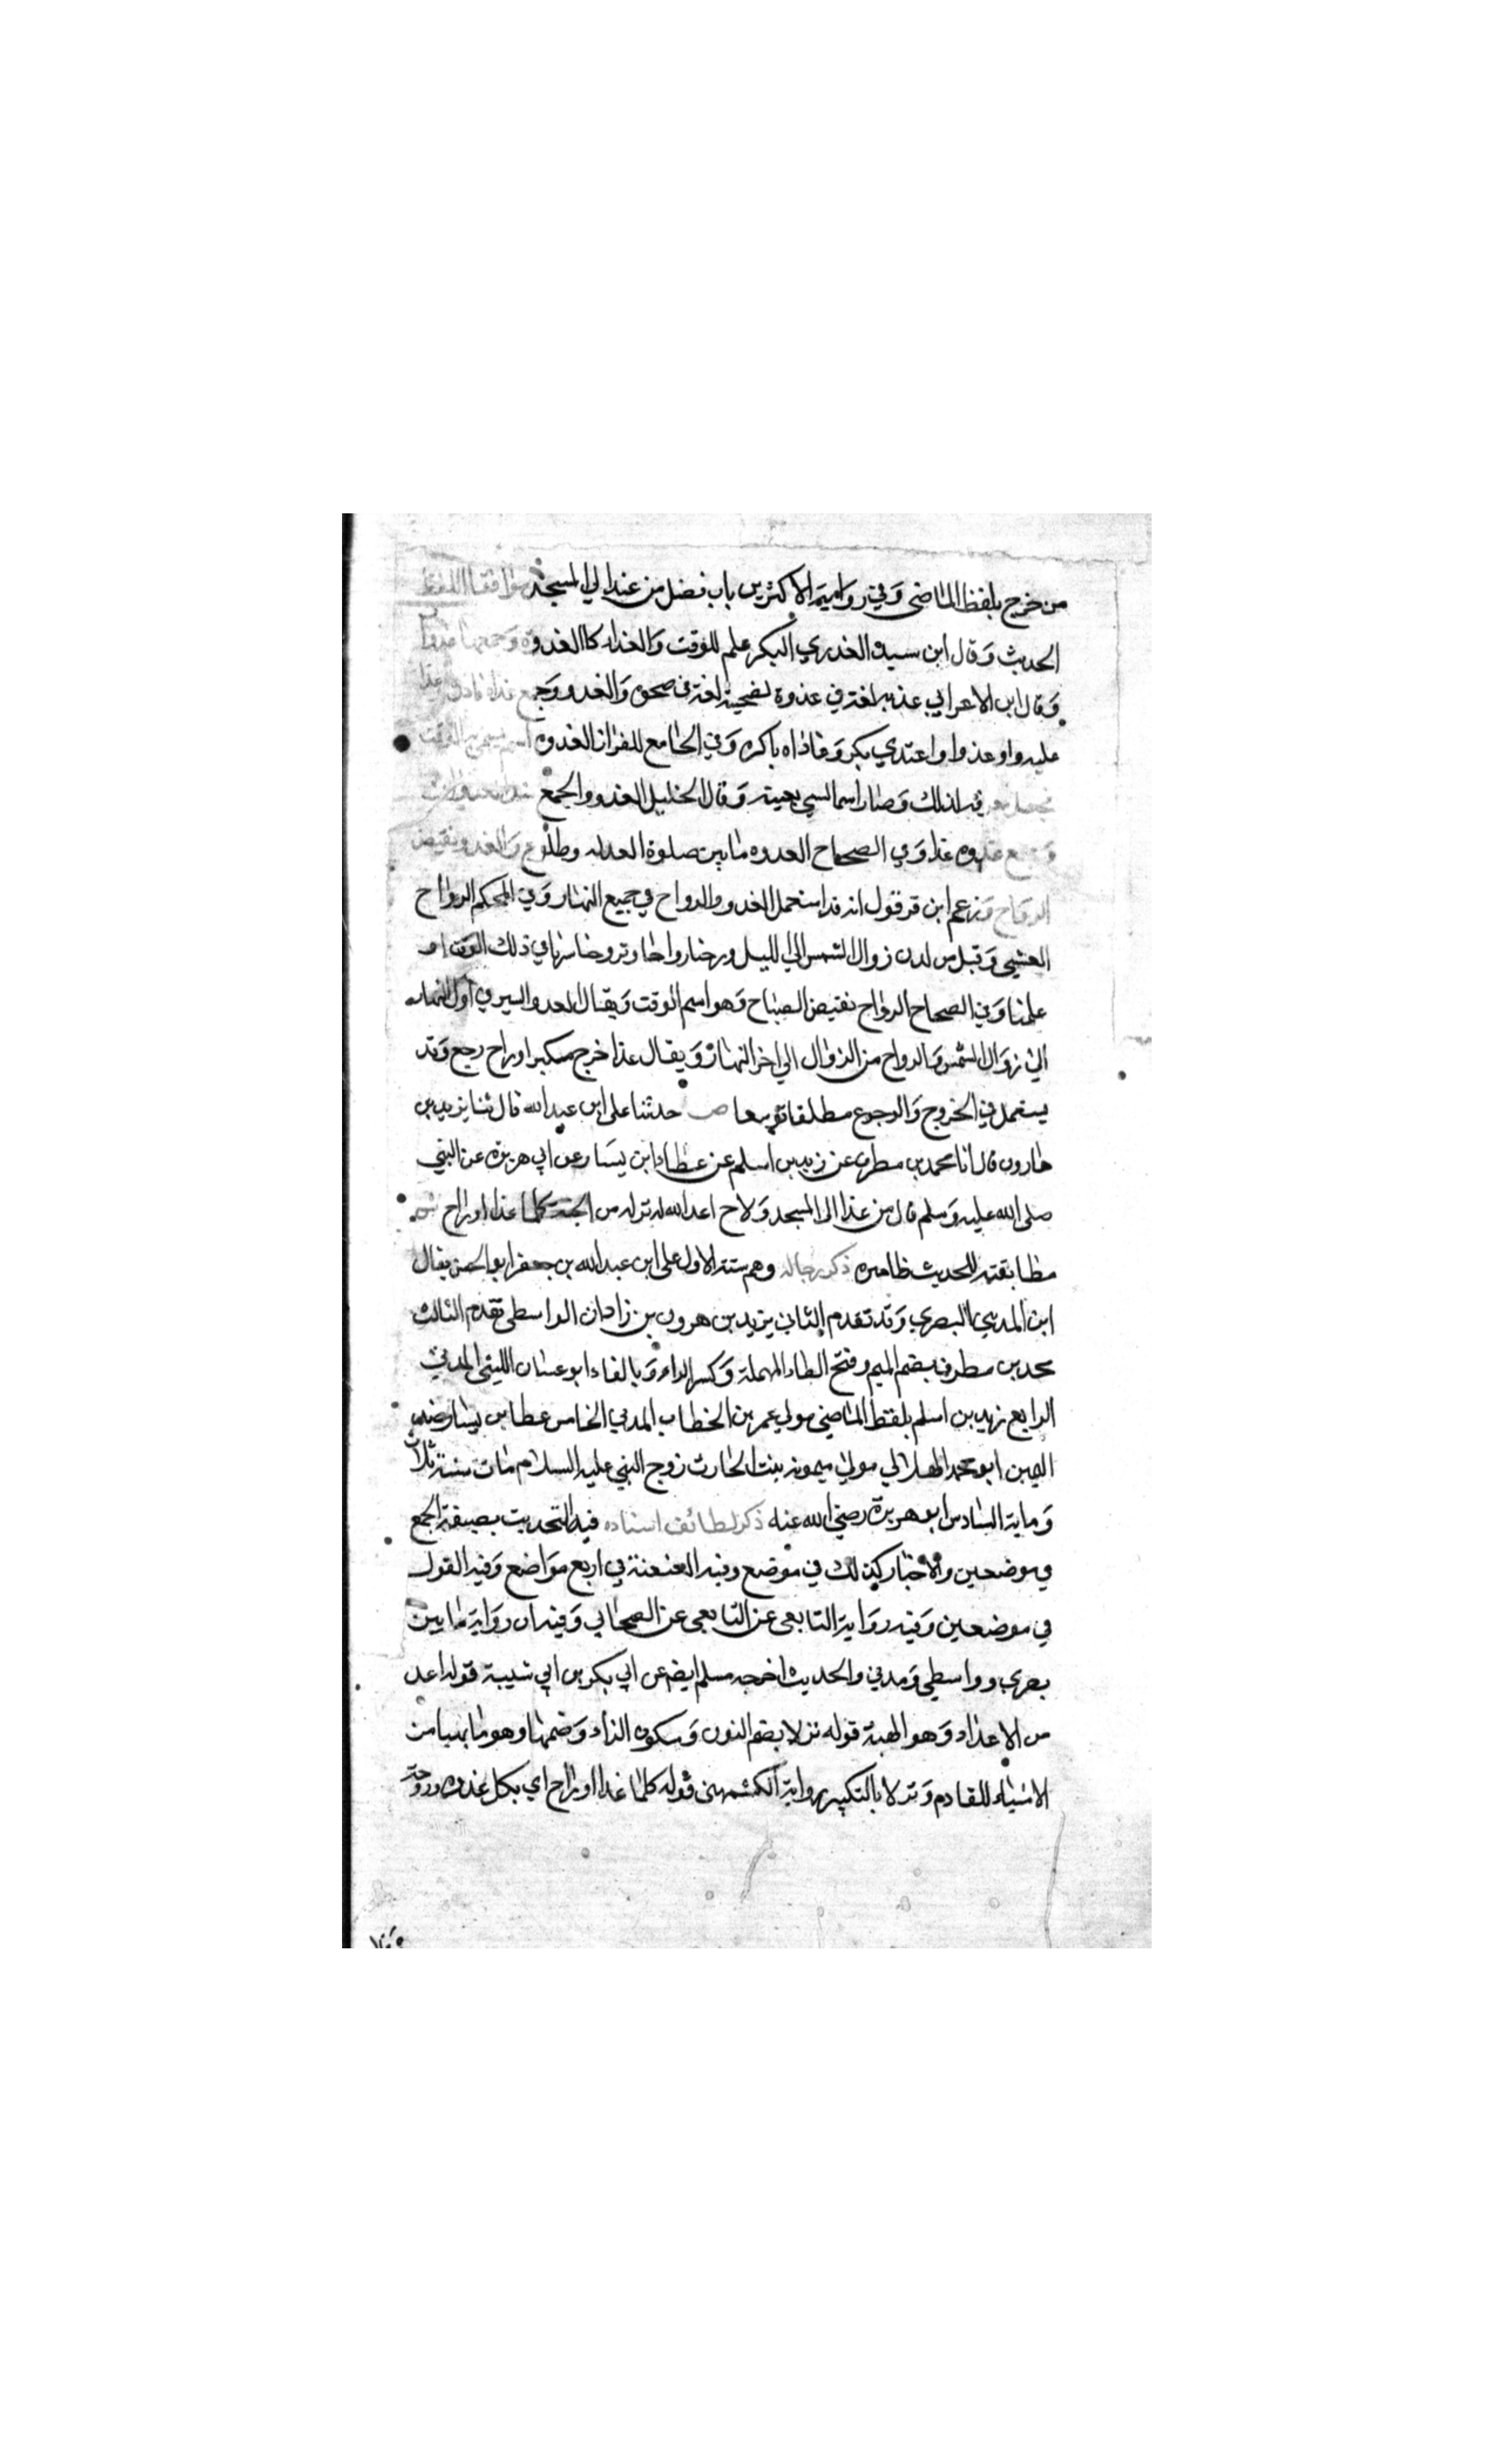 من خرج بلفظ الماضي وفي رواية الاكثرين باب فضل من غدا الي المسجد موافقا للفظ
الحديث وقال ابن سيده الغدري البكر علم للوقت والغداه كاالغدوة وجمعها
وقال ابن الاعرابي غديه لغة في غدوة لضحية لغة في صحوه والغدو وجمع غداة
عليه واو غدوا واغتدي بكر وغاداه باكره وفي الجامع للقزاز الغدوه اسم سمي به الوقت
فيه لذلك وصار اسما لشي بعينه وقال الخليل الغدو والجمع
غدوه غدا وفي الصحاح الغدوه ما بين صلوة الغداه وطلوع والغدو نقيض
الرواح وزعم ابن قرقول انه قد استعمل الغدو والرواح في جميع النهار وفي المحكم الرواح
العشي وقيل من لدن زوال الشمس الي الليل ورحنا رواحا وتروحنا سرنا في ذلك الوقت او
علمنا وفي الصحاح الرواح نقيض الصباح وهو اسم للوقت ويقال الغدو السير في اول النهار
الي زوال الشمس والرواح من الزوال الي اخر النهار ويقال غدا خرج مبكرا وراح رجع وقد
يستعمل في الخروج والرجوع مطلقا توسعا ص حدثنا على ابن عبد الله قال ثنا يزيد بن
هارون قال انا محمد بن مطرف عن زيد بن اسلم عن عطاء ابن يسار عن ابي هريرة عن النبي
صلى الله عليه وسلم قال من غدا الى المسجد ولاح اعد الله له نزله من الجنة كلما غدا او راح ش
مطابقته للحديث ظاهره ذكر رجاله وهم ستة الاول على ابن عبد الله بن جعفر ابو الحسن يقال
ابن المديني البصري وقد تقدم الثاني يزيد بن هرون بن زادان الواسطي تقدم الثالث
محمد بن مطرف بضم الميم وفتح الطاء المهملة وكسر الراء وبالفاء ابو غسان الليثي المدني
الرابع زيد بن اسلم بلفظ الماضي مولي عمر بن الخطاب المدني الخامس عطا بن يسار ضد
اليمين ابو محمد الهلالي مولي ميمونه بنت الحارث زوج النبي عليه السلام مات سنة ثلاث
وماية السادس ابو هريرة رضي الله عنه ذكر لطائف اسناده فيه التحديث بصيغة الجمع
في موضعين والاخبار كذلك في موضع وفيه العنعنة في اربع مواضع وفيه القول
في موضعين وفيه رواية التابعي عن التابعي عن الصحابي وفيه ان رواية ما بين
بصري وواسطي ومدني والحديث اخرجه مسلم ايضا عن ابي بكر بن ابي شيبة قوله اعد
من الاعداد وهو الهبة قوله نزلا بضم النون وسكون الزاء وضمها وهو ما يهيا من
الاشياء للقادم ونزلا بالتكير رواية الكشمهني قوله كلما غدا او راح اي بكل غدوه وروحة